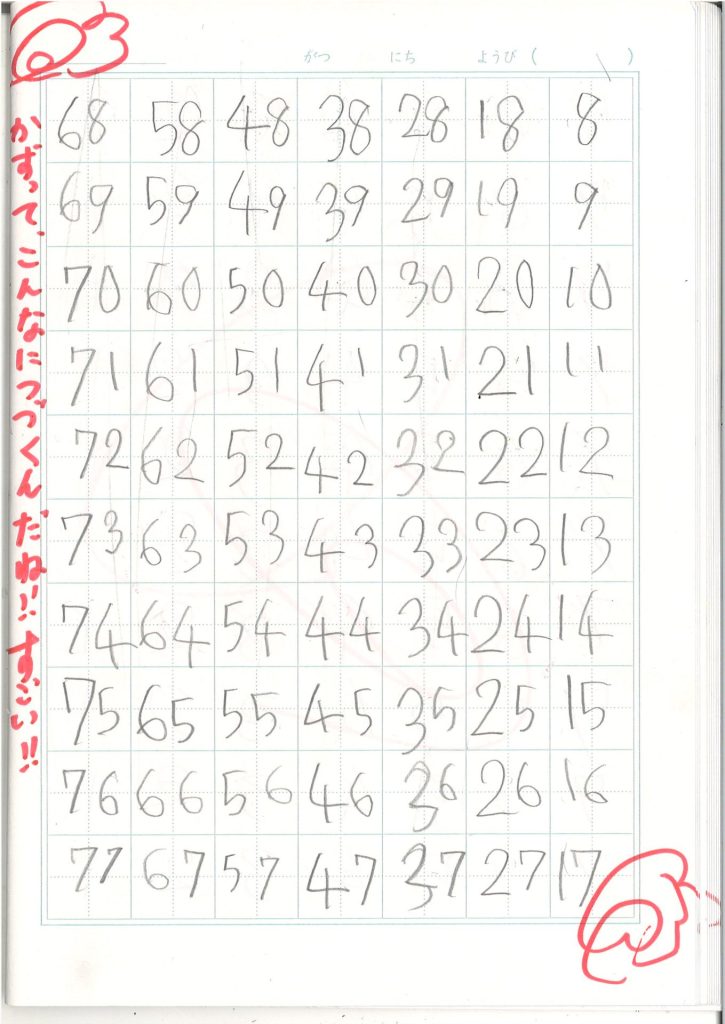 がつ にち ようび ( )
8
9
10
11
12
13
14
15
16
17
18
19
20
21
22
23
24
25
26
27
28
29
30
31
32
33
34
35
36
37
38
39
40
41
42
43
44
45
46
47
48
49
50
51
52
53
54
55
56
57
58
59
60
61
62
63
64
65
66
67
68
69
70
71
72
73
74
75
76
77
かずって、こんなにつづくんだね!! すごい!!